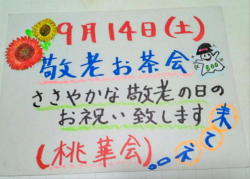 9月14日(土)
敬老お茶会
ささやかな敬老の日の
お祝い致します
(桃華会)